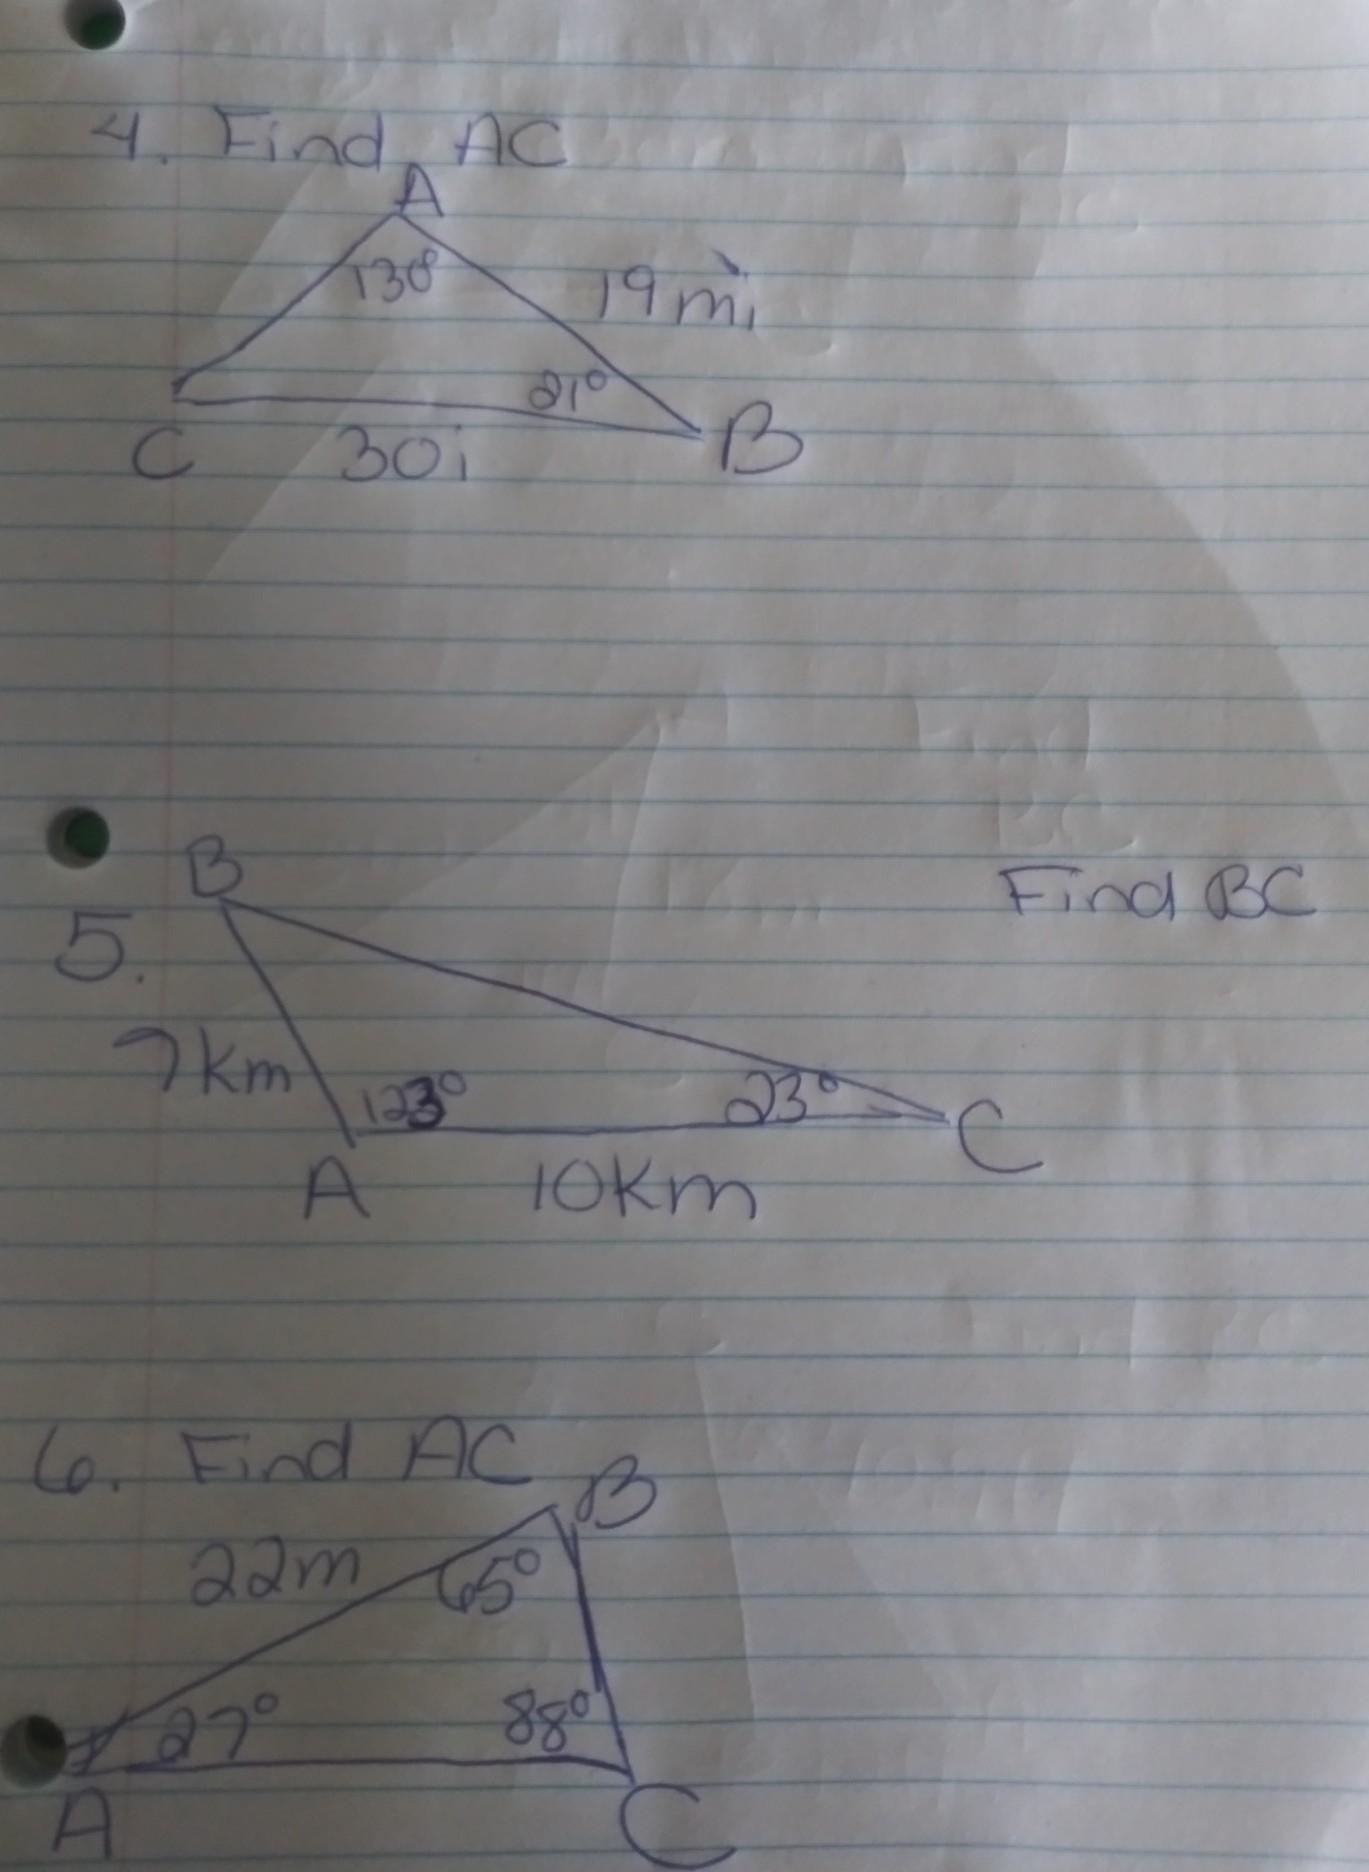 4. Find AC
A
130°
19mi
21°
C 30i B
B
Find BC
5.
7km
123° 23° C
A 10km
6. Find AC
B
22m
65°
27° 88°
A C